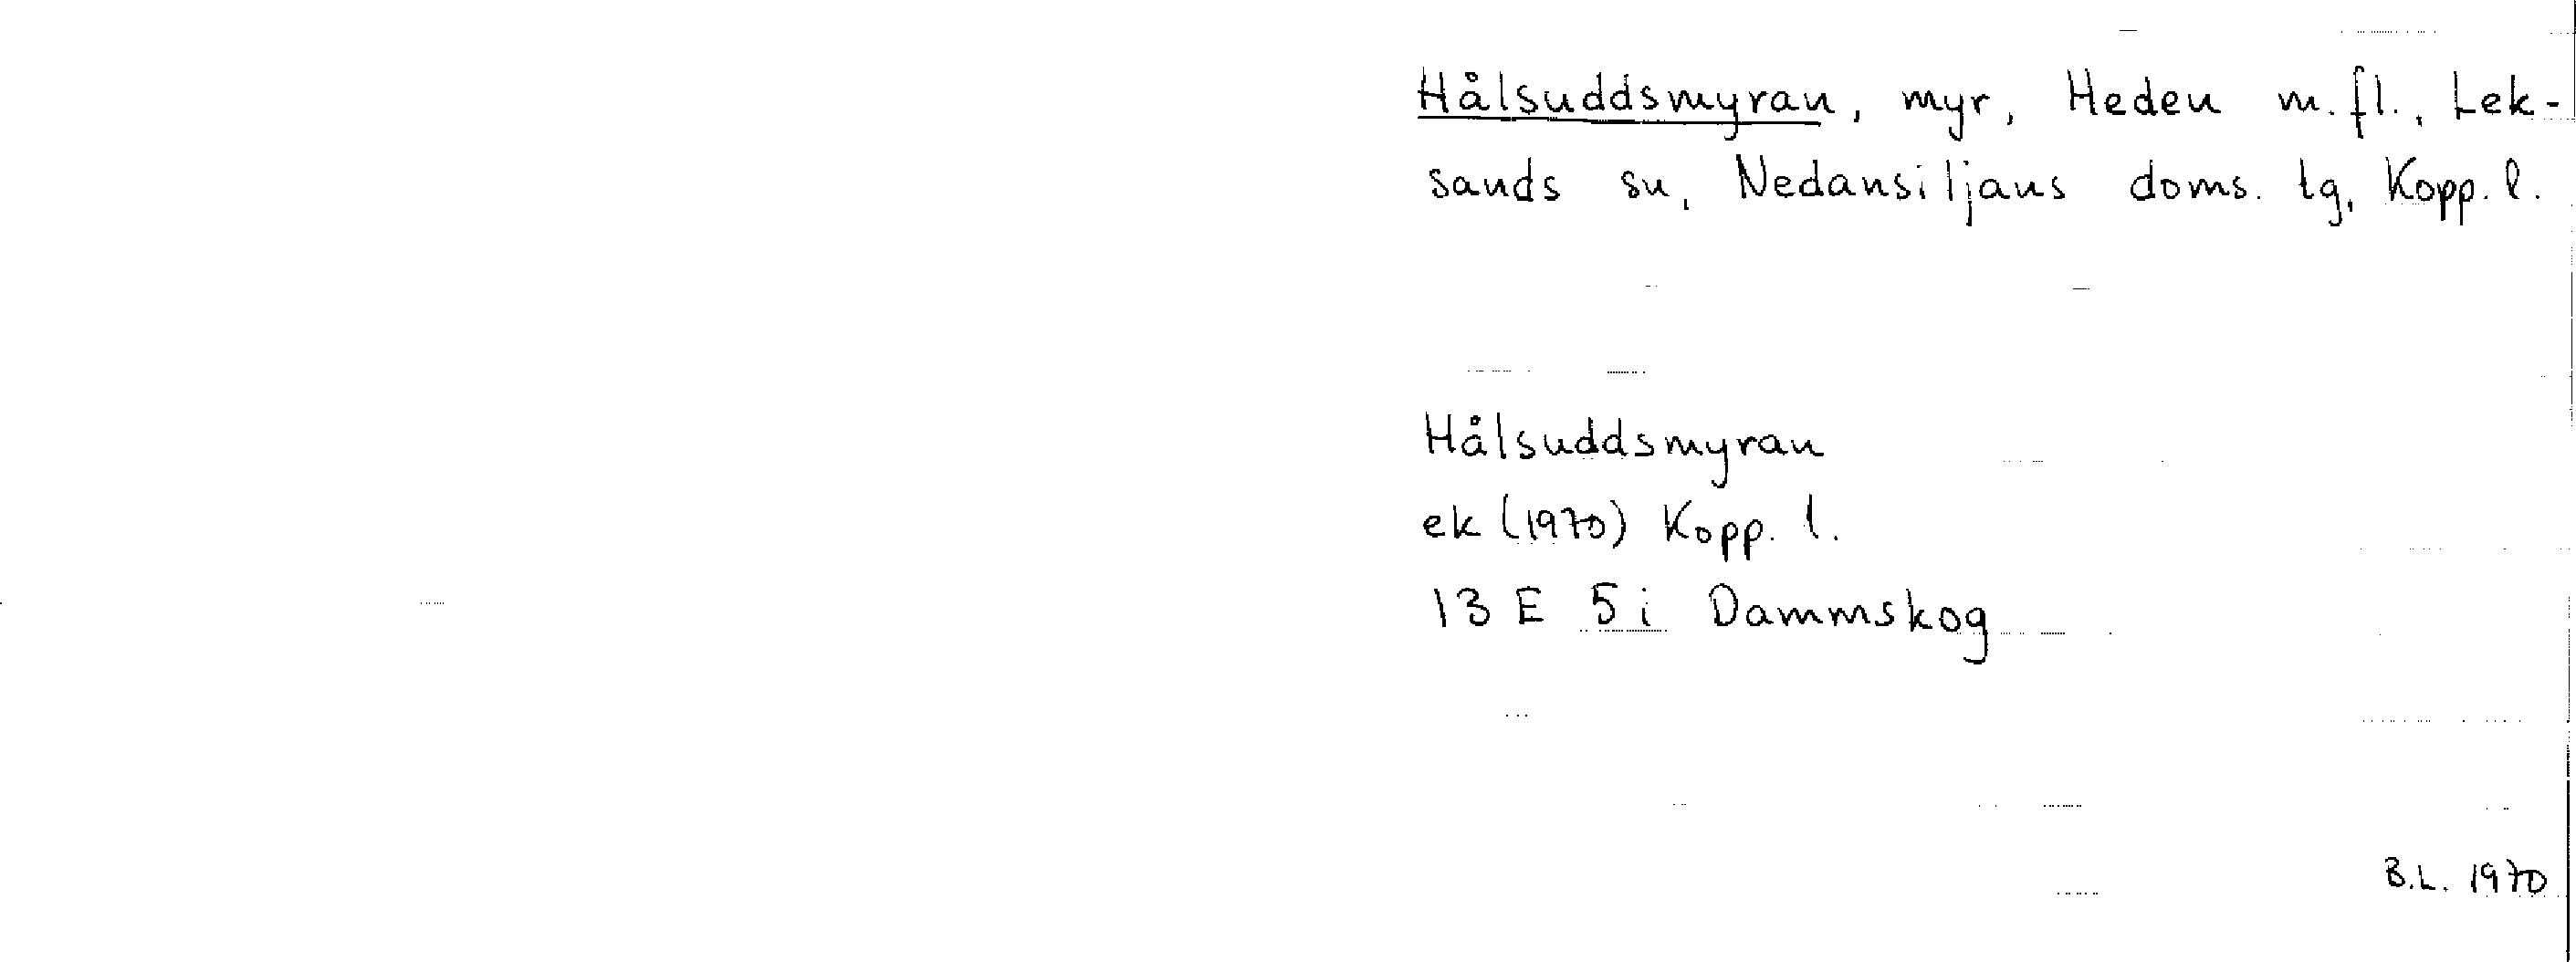 Hålsuddsmyran, myr, Heden m.fl., Lek-
sands sn, Nedansiljans doms. tg, Kopp. l.
Hålsuddsmyran
ek (1970) Kopp. l.
13 E 5 i Dammskog
B.L. 1970